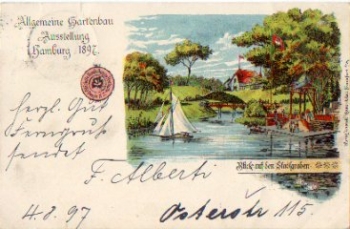 Allgemeine Gartenbau
Ausstellung
Hamburg 1897.
herzl. Gut
Ferngruss
sendet
F. Alberti
Blick auf den Stadtgraben
4.8.97
Osterstr 115.